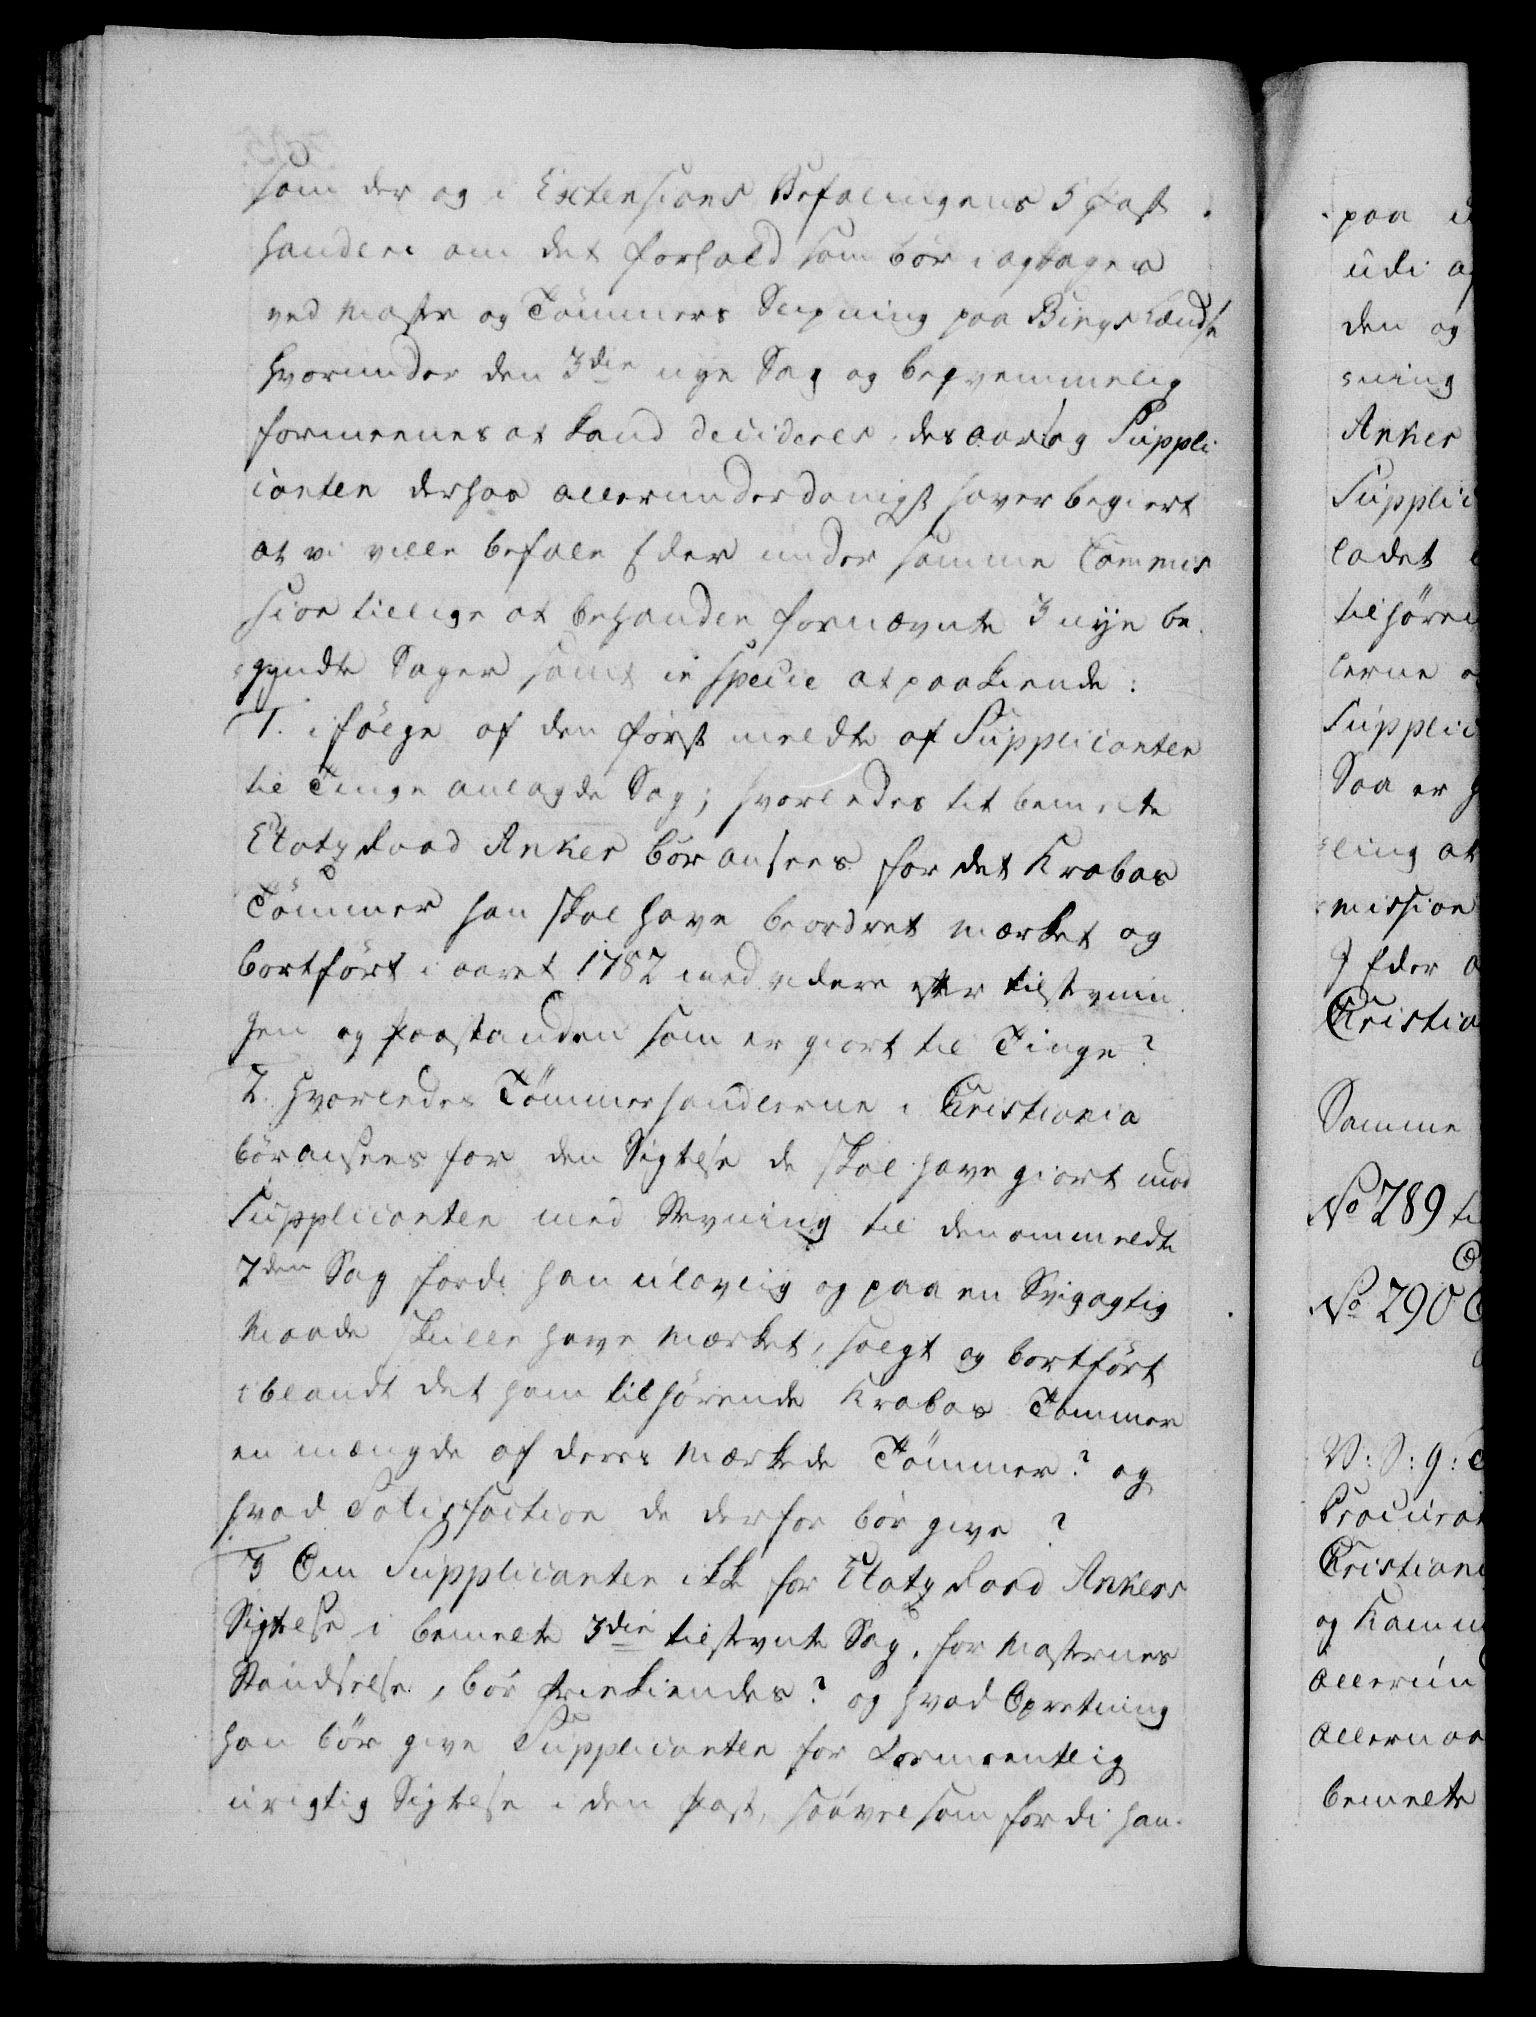 som der og i Extensions Befalingens 5 Post
handere om det forhold som bör iagtages
ved Maste og Tömmers Slupning paa Bings Lændse
hvorunder den 3die nye Sag og beqvemmelig
formeenes at kand decideres, des aarsag Suppli
canten derhos allerunderdanigst haver begiert
at vi ville befale Eder under samme Commis
sion tillige at behandle fornævnte 3 nye be
gyndte Sager samt in specie at paakiende:
1. i fölge af den först meldte af Supplicanten
til Tinge anlagde Sag; hvorledes tit bemelte
Etatz Raad Anker bör ansees for det Krabas
Tömmer han skal have beordret mærket og
bortfört i aaret 1782 med videre efter tilstevnin
gen og paastanden som er giort til Tinge?
2. Hvorledes Tömmerhandlerne i Christiania
bör ansees for den Sigtelse de skal have giort mod
Supplicanten med Stevning til den ommeldte
2den Sag fordi han ulovlig og paa en Svigagtig
Maade skulle have mærket, solgt og bortfört
iblandt det ham tilhörende Krabas Tömmer
en mængde af deres mærkede Tömmer? og
hvad Satisfaction de derfor bör give?
3 Om Supplicanten ikke for Etatz Raad Ankers
Sigtelse i bemelte 3die tilstevnte Sag, for Masternes
Standselse, bör friekiendes? og hvad Opretning
han bör give Supplicanten for formeentlig
urigtig Sigtelse i den Post, saavel som fordi han
paa
udi
den og
sning
Anker
Supplic
ladet
tilhöre
lerne
Supplic
Saa er
ling at
mission
Eder
Christia
Samme
No 289
No 290
V: S: g:
Procurat
Christian
og Kamm
allerun
allernaa
bemelte